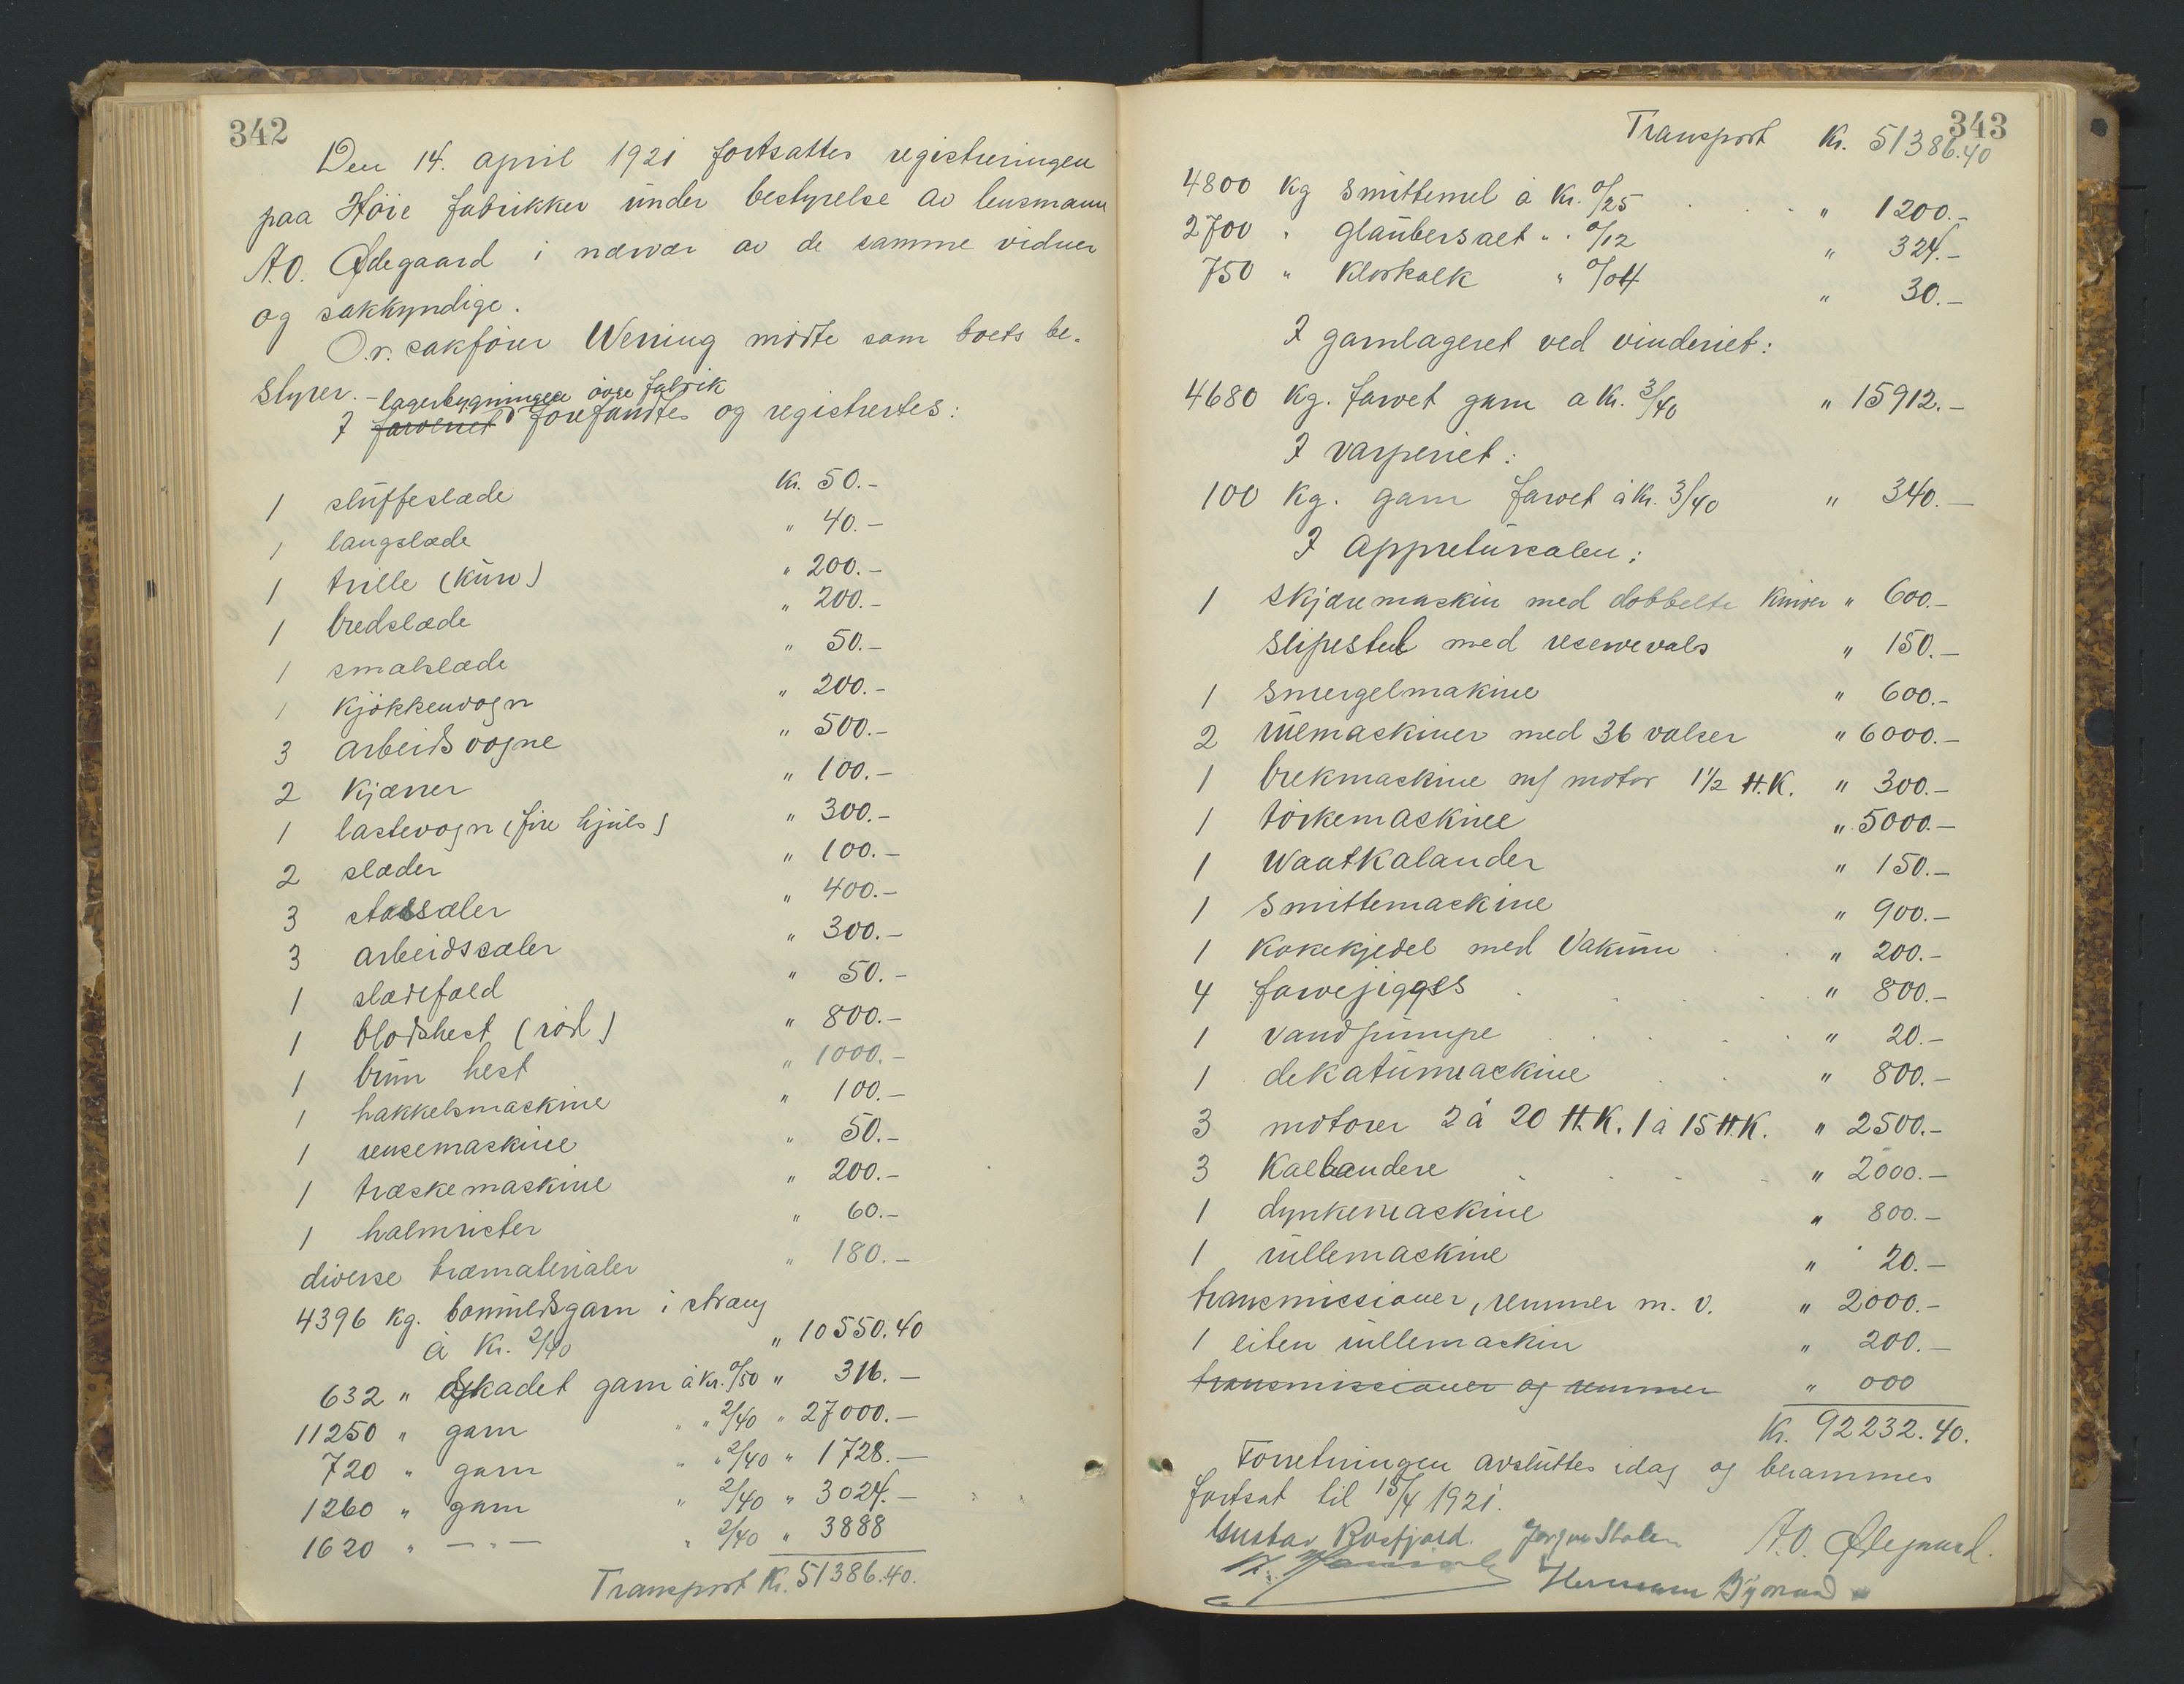 342
Den 14. april 1921 fortsattes registreringen
paa Höie fabrikker under bestyrelse av lensmann
A.O. Ødegaard i nærvær av de samme vidner
og sakkyndige.
O.r. sakförer Wering mötte som boets be-
styrer. –
lagerbygningen övre fabrik
I farveriet forefandtes og registrertes:
1 sluffeslæde Kr. 50.–
1 langslæde " 40.–
1 trille (kurv) " 200.–
1 bredslæde " 200.–
1 smalslæde " 50.–
1 kjökkenvogn " 200.–
3 arbeidsvogne " 500.–
2 kjærrer " 100.–
1 lastevogn (fire hjuls) " 300.–
2 slæder " 100.–
3 stassæler " 400.–
3 arbeidssæler " 300.–
1 slædefæld " 50.–
1 blodshest (röd) " 800.–
1 brun hest " 1000.–
1 hakkelsmaskine " 100.–
1 rensemaskine " 50.–
1 træskemaskine " 200.–
1 halmrister " 60.–
diverse træmaterialer " 180.–
4396 kg. bomuldsgarn i streng
à Kr. 2/40 " 10550.40
632 " skadet garn à kr. 0/50 " 316.–
11250 " garn " " 2/40 " 27000.–
720 " garn " " 2/40 " 1728.–
1260 " garn " 2/40 " 3024.–
1620 " – " – " 2/40 " 3888
Transport Kr. 51386.40.
343
Transport Kr. 51386.40
4800 kg smittemel à Kr. 0/25 " 1200.–
2700 " glaubersalt " " 0/12 " 324.–
750 " Klorkalk " 0/04 " 30.–
I garnlageret ved vinderiet:
4680 kg. farvet garn a Kr. 3/40 " 15912.–
I varperiet:
100 kg. garn farvet à Kr. 3/40 " 340.–
I Appretursalen:
1 skjæremaskin med dobbelte kniver " 600.–
slipestel med reservevals " 150.–
1 smergelmakine " 600.–
2 ruemaskiner med 36 valser " 6000.–
1 brekmaskine m/ motor 1 1/2 H.K. " 300.–
1 törkemaskine " 5000.–
1 Waatkalander " 150.–
1 smittemaskine " 900.–
1 kokekjedel med Vakum " 200.–
4 farvejigges " 800.–
1 vandpumpe " 20.–
1 dekaturmaskine " 800.–
3 motorer 2 à 20 H.K. 1 à 15 H.K. " 2500.–
3 Kallandere " 2000.–
1 dynkemaskine " 800.–
1 rullemaskine " 20.–
transmissioner, remmer m. v. " 2000.–
1 liten rullemaskin " 200.–
transmissioner og remmer " 000
Kr. 92232.40.
Forretningen avsluttes idag og berammes
fortsat til 15/4 1921.
Gustav Rosfjord. Jørgen Stolen A.O. Ødegaard.
Hermann